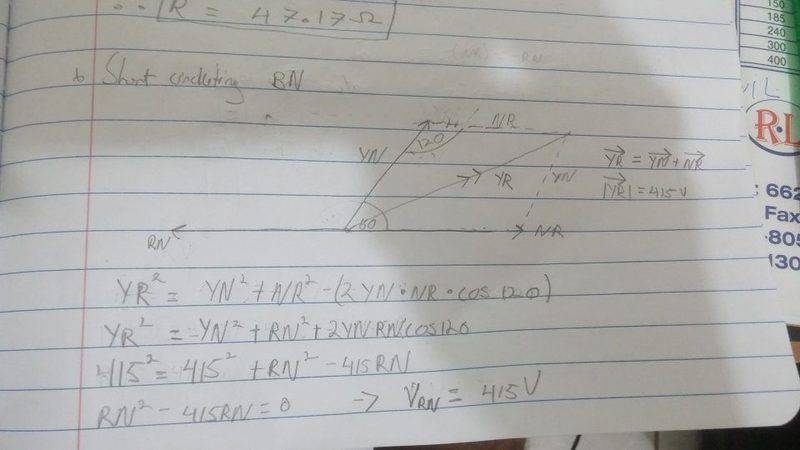 ∴ R = 47.17Ω
b Short circuiting BN
YN
120
NR
YR
YN
60
RN
NR
YR = YN + NR
|YR| = 415 V
YR² = YN² + NR² - (2 YN · NR · cos 120)
YR² = YN² + RN² + 2YN RN cos 120
415² = 415² + RN² - 415RN
RN² - 415RN = 0 → V_RN = 415 V
150
185
240
300
400
R·L
: 662
Fax
805
130